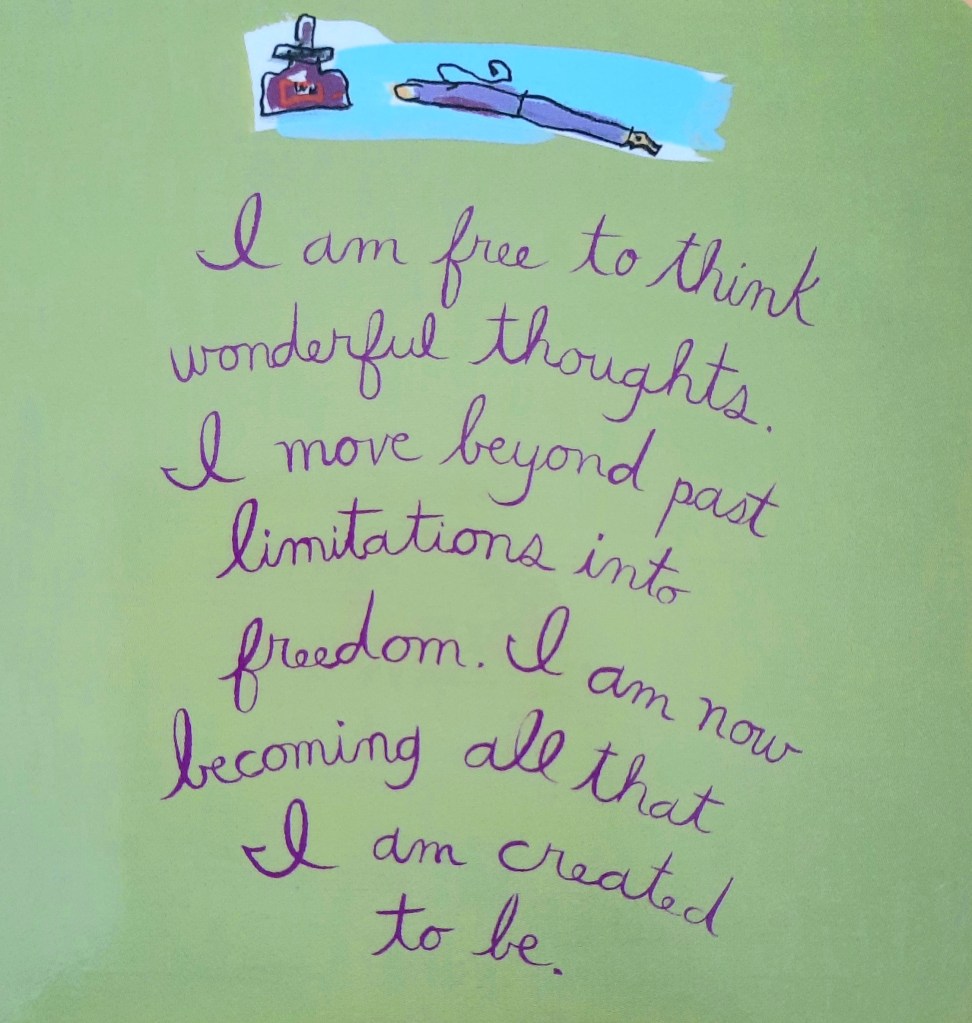 I am free to think
wonderful thoughts.
I move beyond past
limitations into
freedom. I am now
becoming all that
I am created
to be.